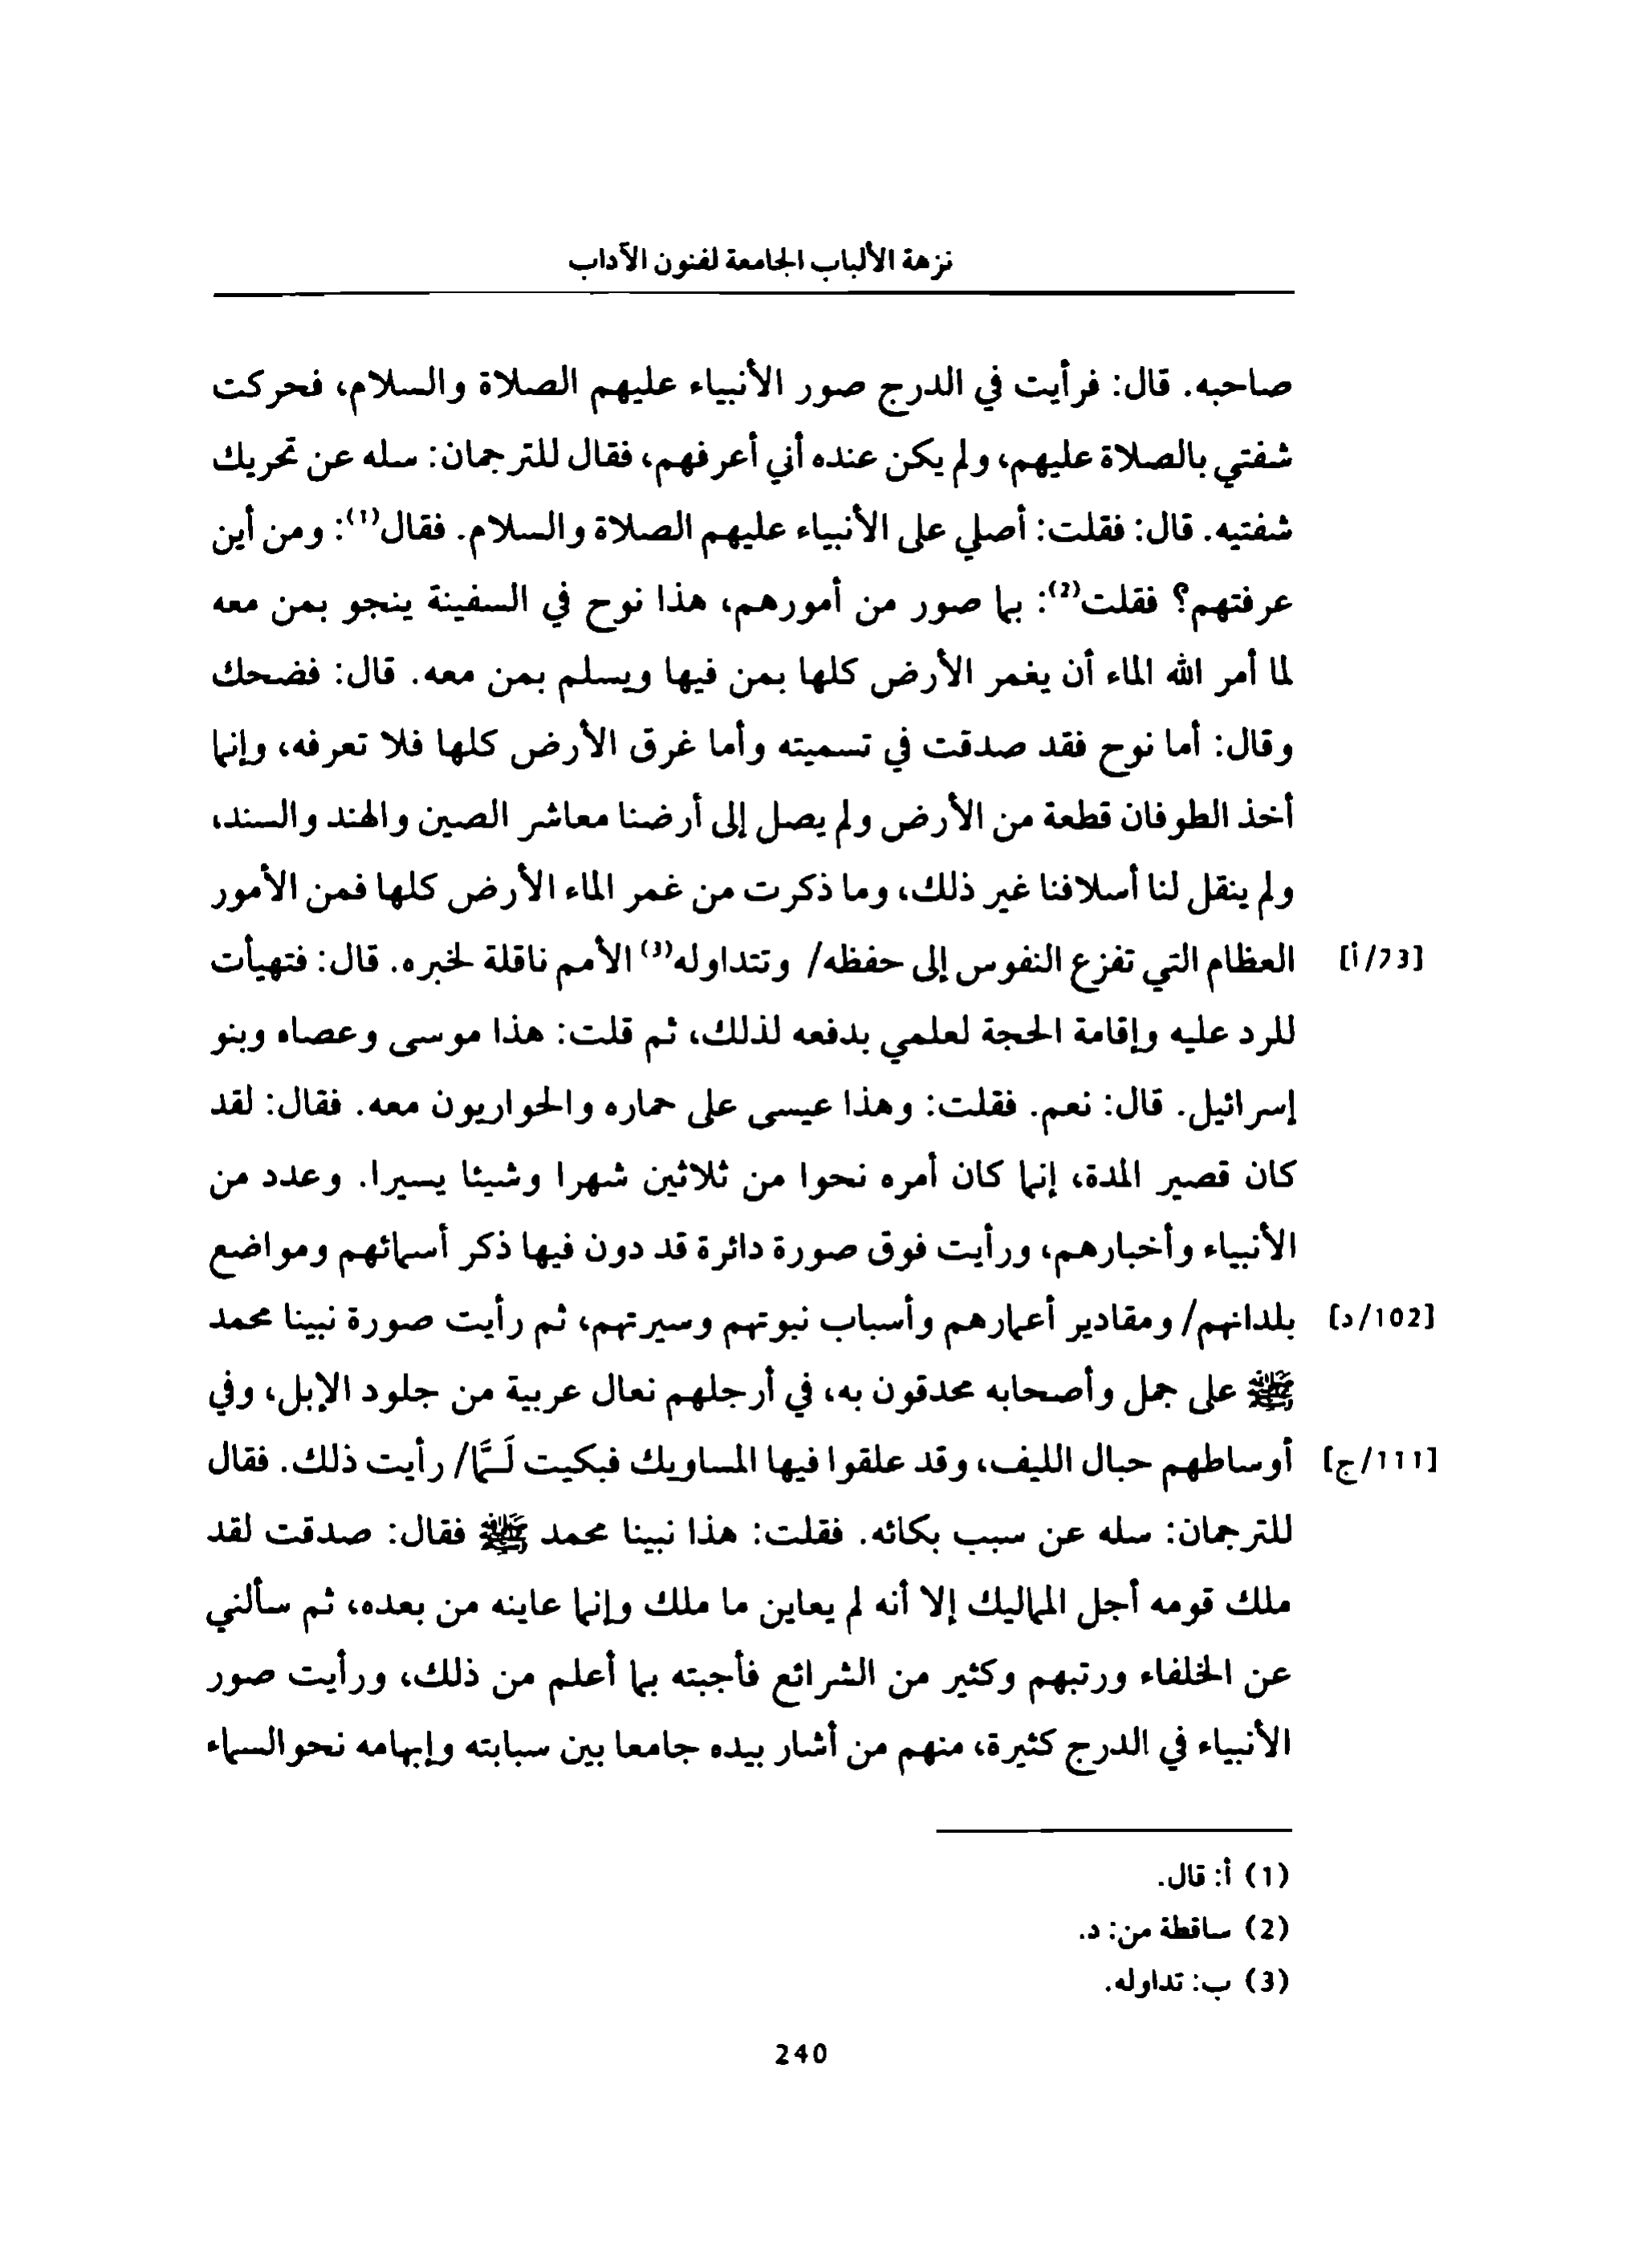 نزهة الألباب الجامعة لفنون الآداب
صاحبه. قال: فرأيت في الدرج صور الأنبياء عليهم الصلاة والسلام، فحركت
شفتي بالصلاة عليهم، ولم يكن عنده أني أعرفهم، فقال للترجمان: سله عن تحريك
شفتيه. قال: فقلت: أصلي على الأنبياء عليهم الصلاة والسلام. فقال(1): ومن أين
عرفتهم؟ فقلت(2): بما صور من أمورهم، هذا نوح في السفينة ينجو بمن معه
لما أمر الله الماء أن يغمر الأرض كلها بمن فيها ويسلم بمن معه. قال: فضحك
وقال: أما نوح فقد صدقت في تسميته وأما غرق الأرض كلها فلا تعرفه، وإنما
أخذ الطوفان قطعة من الأرض ولم يصل إلى أرضنا معاشر الصين والهند والسند،
ولم ينقل لنا أسلافنا غير ذلك، وما ذكرت من غمر الماء الأرض كلها فمن الأمور
[73/أ] العظام التي تفزع النفوس إلى حفظه/ وتتداوله(3) الأمم ناقلة لخبره. قال: فتهيأت
للرد عليه وإقامة الحجة لعلمي بدفعه لذلك، ثم قلت: هذا موسى وعصاه وبنو
إسرائيل. قال: نعم. فقلت: وهذا عيسى على حماره والحواريون معه. فقال: لقد
كان قصير المدة، إنما كان أمره نحوا من ثلاثين شهرا وشيئا يسيرا. وعدد من
الأنبياء وأخبارهم، ورأيت فوق صورة دائرة قد دون فيها ذكر أسمائهم ومواضع
[102/د] بلدانهم/ ومقادير أعمارهم وأسباب نبوتهم وسيرتهم، ثم رأيت صورة نبينا محمد
ﷺ على جمل وأصحابه محدقون به، في أرجلهم نعال عربية من جلود الإبل، وفي
[111/ج] أوساطهم حبال الليف، وقد علقوا فيها المساويك فبكيت لَـمَّا/ رأيت ذلك. فقال
للترجمان: سله عن سبب بكائه. فقلت: هذا نبينا محمد ﷺ فقال: صدقت لقد
ملك قومه أجل الممالیك إلا أنه لم يعاين ما ملك وإنما عاينه من بعده، ثم سألني
عن الخلفاء ورتبهم وكثير من الشرائع فأجبته بما أعلم من ذلك، ورأيت صور
الأنبياء في الدرج كثيرة، منهم من أشار بيده جامعا بين سبابته وإبهامه نحو السماء
(1) أ: قال.
(2) ساقطة من: د.
(3) ب: تداوله.
240